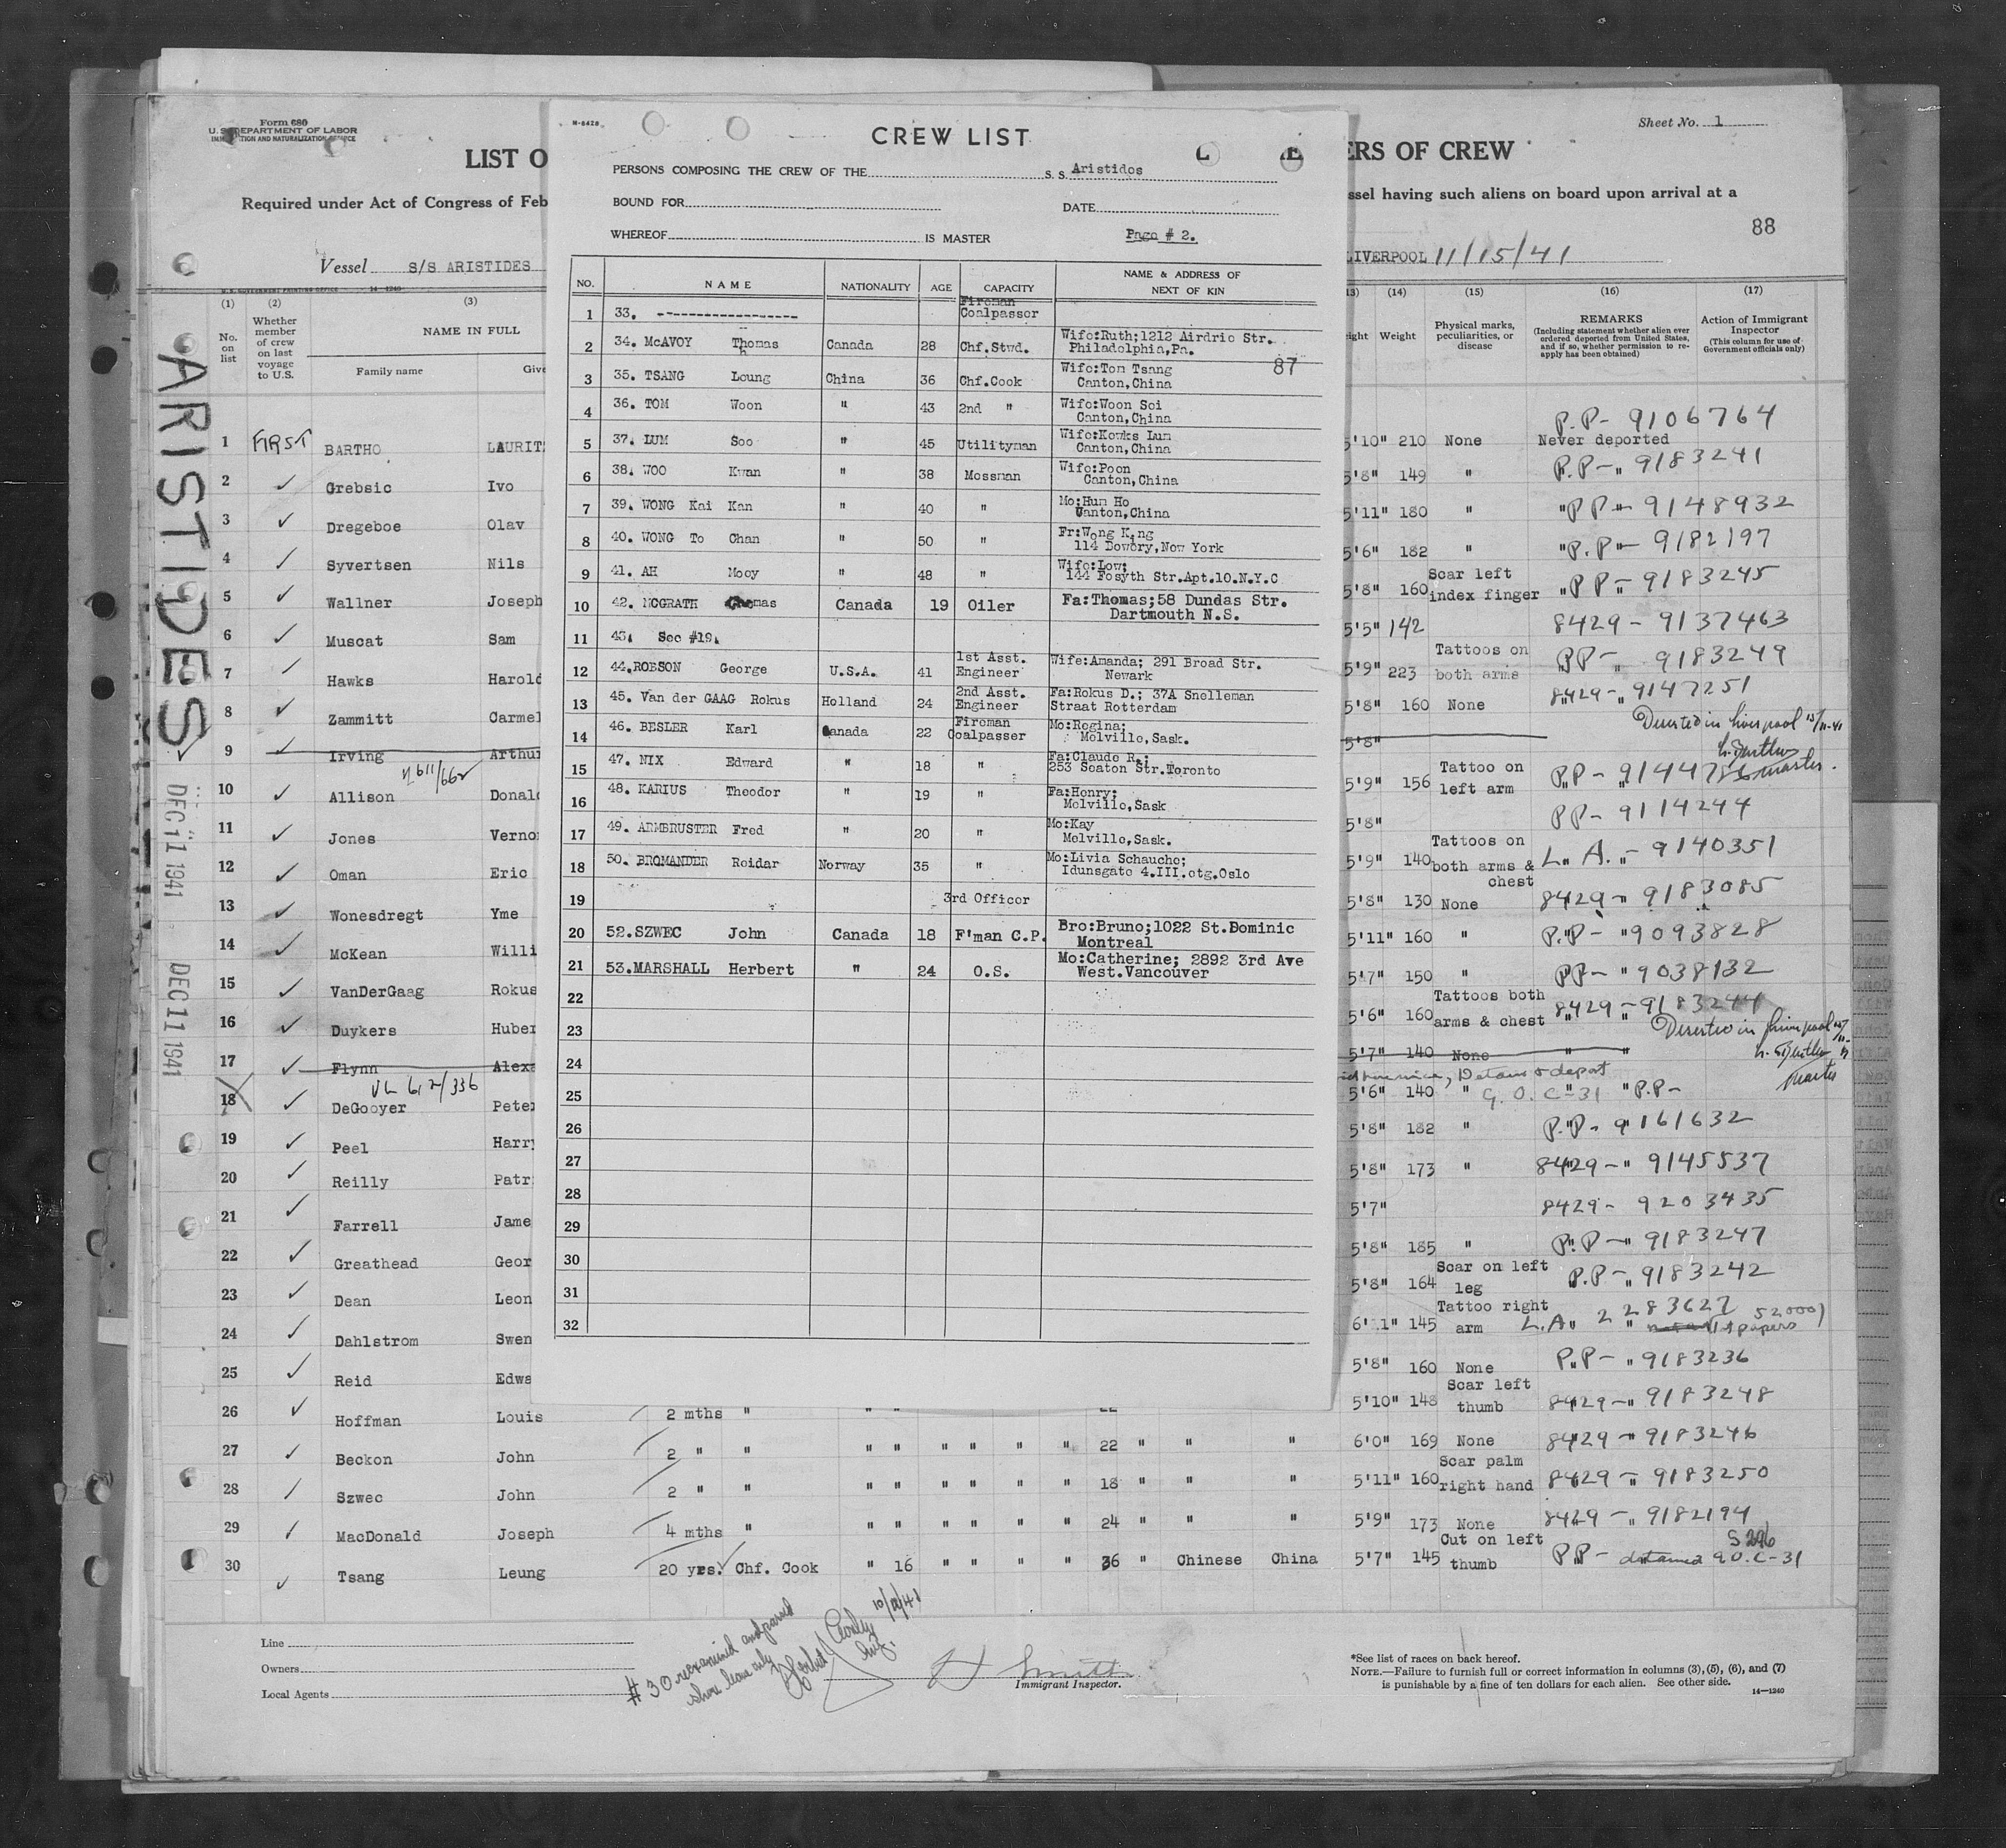 Form 680
U. S. DEPARTMENT OF LABOR
LIST O
Required under Act of Congress of Feb
Vessel S/S ARISTIDES
ARISTIDES
DEC 11 1941
DEC 11 1941
(1) (2) (3)
No. on list
Whether member of crew on last voyage to U.S.
NAME IN FULL
Family name Give
1 FIRST BARTHO LAURIT
2 ✓ Grebsic Ivo
3 ✓ Dregeboe Olav
4 ✓ Syvertsen Nils
5 ✓ Wallner Joseph
6 ✓ Muscat Sam
7 ✓ Hawks Harold
8 ✓ Zammitt Carmel
9 ✓ Irving Arthur
10 ✓ Allison Donald
11 ✓ Jones Vernon
12 ✓ Oman Eric
13 ✓ Wonesdregt Yme
14 ✓ McKean Willi
15 ✓ VanDerGaag Rokus
16 ✓ Duykers Huber
17 ✓ Flynn Alexa
18 ✓ DeGooyer Peter
19 ✓ Peel Harry
20 ✓ Reilly Patr
21 ✓ Farrell Jame
22 ✓ Greathead Geor
23 ✓ Dean Leon
24 ✓ Dahlstrom Swen
25 ✓ Reid Edwa
26 ✓ Hoffman Louis 2 mths "
27 ✓ Beckon John 2 " " " " " " " " 22 " " "
28 ✓ Szwec John 2 " " " " " " " " 18 " " "
29 ✓ MacDonald Joseph 4 mths " " " " " " " 24 " " "
30 ✓ Tsang Leung 20 yrs. Chf. Cook " 16 " " " " 36 " Chinese China
M-6428
CREW LIST
PERSONS COMPOSING THE CREW OF THE S. S. Aristidos
BOUND FOR DATE
WHEREOF IS MASTER Page # 2.
NO. NAME NATIONALITY AGE CAPACITY NAME & ADDRESS OF NEXT OF KIN
1 33. ------------------ Fireman Coalpasser
2 34. McAVOY Thomas Canada 28 Chf.Stwd. Wife:Ruth;1212 Airdrie Str.
Philadelphia,Pa.
87
3 35. TSANG Leung China 36 Chf.Cook Wife:Tom Tsang
Canton,China
4 36. TOM Woon " 43 2nd " Wife:Woon Soi
Canton,China
5 37. LUM Soo " 45 Utilityman Wife:Kowks Lum
Canton,China
6 38. WOO Kwan " 38 Messman Wife:Poon
Canton,China
7 39. WONG Kai Kan " 40 " Mo:Hum Ho
Canton,China
8 40. WONG To Chan " 50 " Fr:Wong King
114 Bowery,New York
9 41. AH Mooy " 48 " Wife:Low;
144 Fosyth Str.Apt.10.N.Y.C
10 42. MCGRATH Thomas Canada 19 Oiler Fa:Thomas;58 Dundas Str.
Dartmouth N.S.
11 43. See #19.
12 44.ROBSON George U.S.A. 41 1st Asst. Engineer Wife:Amanda; 291 Broad Str.
Newark
13 45. Van der GAAG Rokus Holland 24 2nd Asst. Engineer Fa:Rokus D.; 37A Snelleman
Straat Rotterdam
14 46. BESLER Karl Canada 22 Fireman Coalpasser Mo:Regina;
Melville,Sask.
15 47. NIX Edward " 18 " Fa:Claude R.;
253 Seaton Str.Toronto
16 48. KARIUS Theodor " 19 " Fa:Henry;
Melville,Sask
17 49. ARMBRUSTER Fred " 20 " Mo:Kay
Melville,Sask.
18 50. BROMANDER Reidar Norway 35 " Mo:Livia Schauche;
Idunsgate 4.III.etg.Oslo
19 3rd Officer
20 52.SZWEC John Canada 18 F'man C.P. Bro:Bruno;1022 St.Dominic
Montreal
21 53.MARSHALL Herbert " 24 O.S. Mo:Catherine; 2892 3rd Ave
West.Vancouver
22
23
24
25
26
27
28
29
30
31
32
Sheet No. 1
ERS OF CREW
ssel having such aliens on board upon arrival at a
88
LIVERPOOL 11/15/41
13) (14) (15) (16) (17)
eight Weight
Physical marks, peculiarities, or disease
REMARKS
(Including statement whether alien ever ordered deported from United States, and if so, whether permission to reapply has been obtained)
Action of Immigrant Inspector
(This column for use of Government officials only)
P.P- 9106764
5'10" 210 None Never deported
5'8" 149 " P.P- " 9183241
5'11" 180 " "PP- 9148932
5'6" 182 " "P.P- 9182197
5'8" 160 Scar left index finger "PP- 9183245
5'5" 142 8429- 9137463
5'9" 223 Tattoos on both arms PP- " 9183249
5'8" 160 None 8429- 9147251
5'8" Deserted in Liverpool 15/11-41
master.
5'9" 156 Tattoo on left arm PP-
5'8" PP- 9114244
5'9" 140 Tattoos on both arms & chest L.A. - 9140351
5'8" 130 None 8429- 9183085
5'11" 160 " P.P- "9093828
5'7" 150 " PP- "9038132
5'6" 160 Tattoos both arms & chest 8429- 9183244
5'7" 140 None " " Deserted in Liverpool
master
Detain & deport
5'6" 140 " G.O. C-31 "P.P-
5'8" 182 " P.P- 9161632
5'8" 173 " 8429- " 9145537
5'7" 8429- 9203435
5'8" 185 " P.P- " 9183247
5'8" 164 Scar on left leg P.P- " 9183242
6'1" 145 Tattoo right arm L.A. 2283627 papers
5'8" 160 None P.P- " 9183236
5'10" 148 Scar left thumb 8429- " 9183248
6'0" 169 None 8429- " 9183246
5'11" 160 Scar palm right hand 8429- " 9183250
5'9" 173 None 8429- " 9182194
5'7" 145 Cut on left thumb PP- detained G.O.C-31
Line
Owners
Local Agents
#30 reexamined and passed
shore leave only
Smith
Immigrant Inspector.
*See list of races on back hereof.
NOTE.—Failure to furnish full or correct information in columns (3), (5), (6), and (7)
is punishable by a fine of ten dollars for each alien. See other side.
14—1240